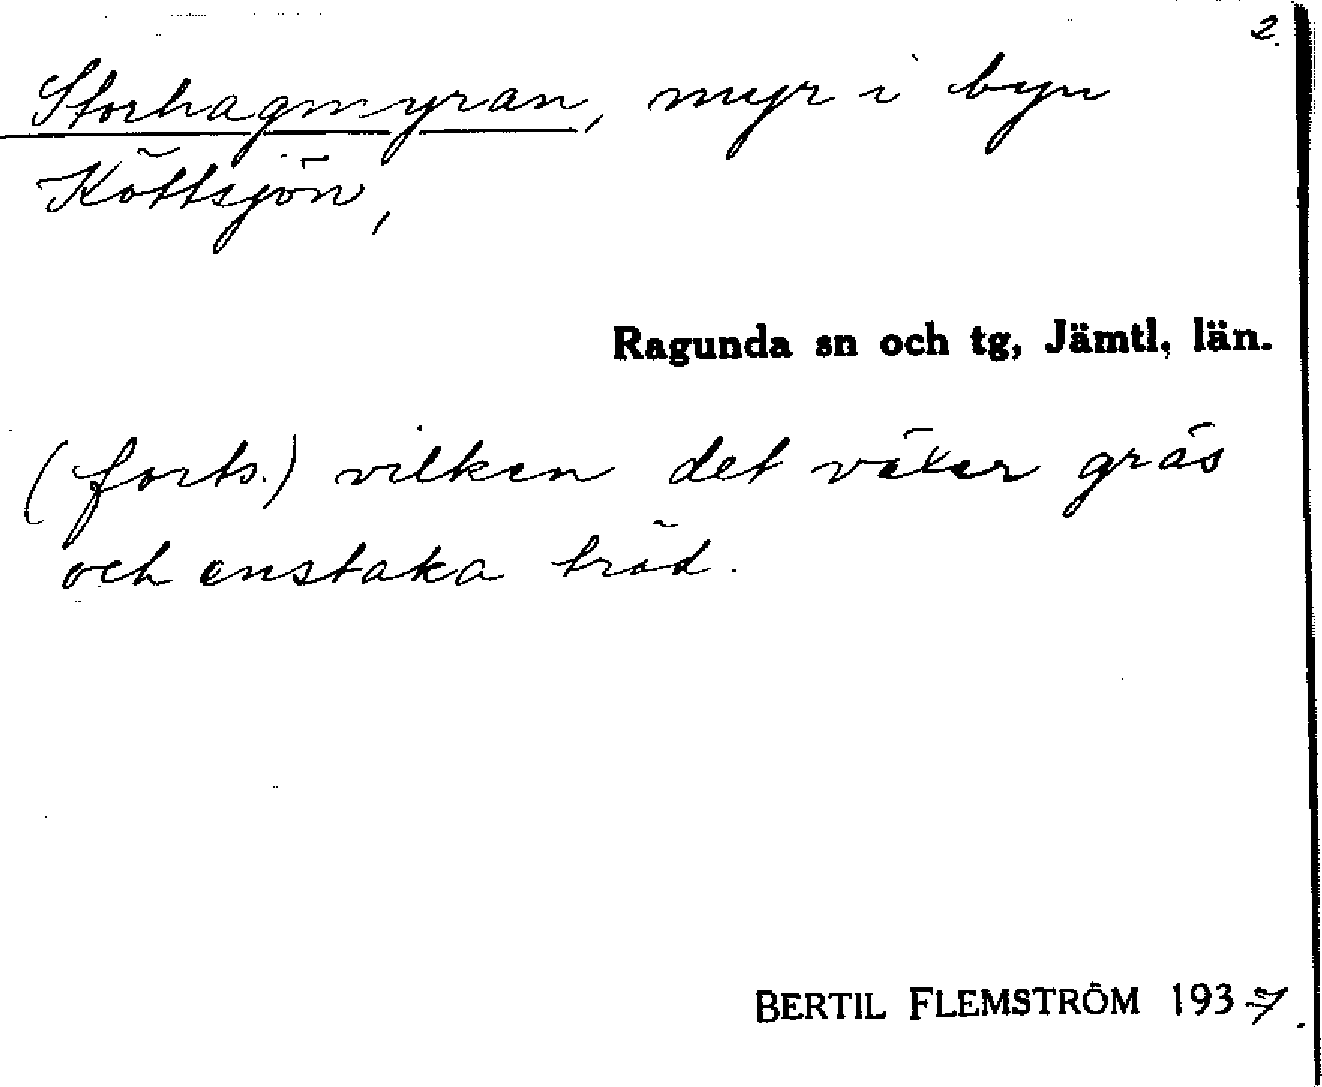 2.
Storhagmyran, myr i byn
Köttsjön,
Ragunda sn och tg, Jämtl. län.
(forts.) vilken det växer gräs
och enstaka träd.
BERTIL FLEMSTRÖM 1937.